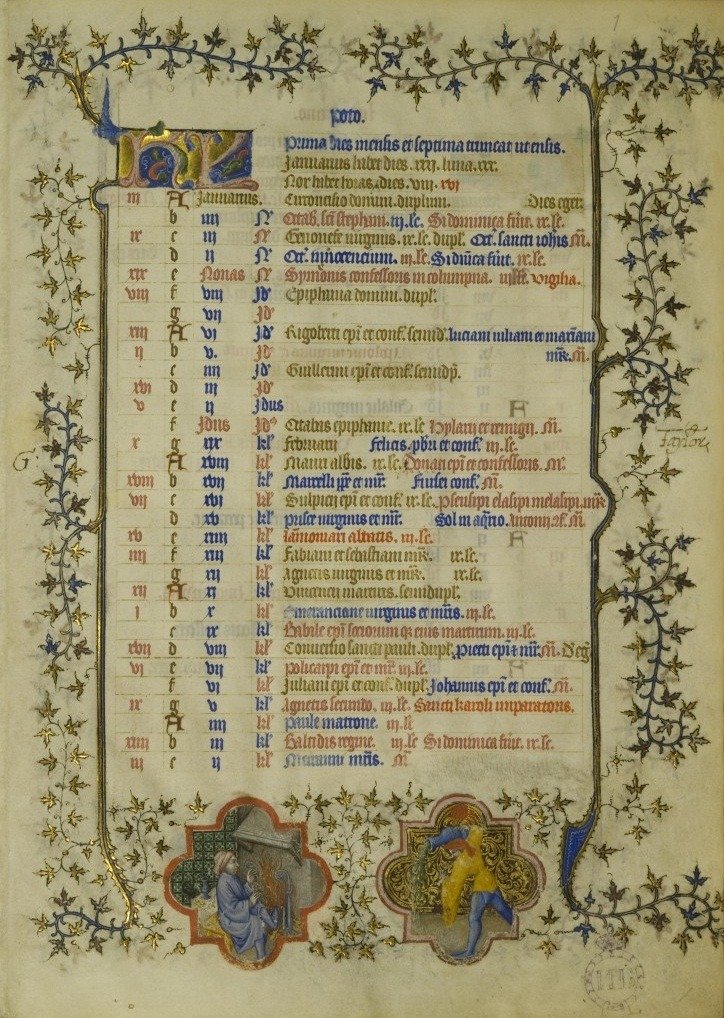 poto.
KL Prima dies mensis et septima truncat ut ensis.
Januarius habet dies. xxxi. luna. xxx.
Nox habet horas. dies. viii. xvi
iii A Januarius. Circoncisio domini. duplum. Dies eger
b iiii N Octab. sci stephani. iii. le. Si dominica fuit. ix. le.
xi c iii N Genovefe virginis. ix. le. dupl. Oct. sancti iohis M.
d ii N Oct. innocencium. iii. le. Si dnica fuit. ix. le.
xix e Nonas N Symonis confessoris in columpna. Vigilia.
viii f viii Id Epiphania domini. dupl.
g vii Id
xvi A vi Id Rigoberti epi et conf. semid. luciani iuliani et maxiani
mr. M.
ii b v. Id
c iiii Id Guillermi epi et conf. semidp.
xvi d iii Id
v e ii Idus F
f Idus Id Octabus epiphanie. ix. le Hylarii et remigii. M.
x g xix kl Februarii Felicis. pbri et conf. iii. le.
A xviii kl Mauri abbis. ix. le. Bonani epi et confessoris. M.
xviii b xvii kl Marcelli pp et mr. Fursei conf. M.
vii c xvi kl Sulpicii epi et conf. ix. le. Pseusipi elasipi melasipi. mr
d xv kl Prisce virginis et mr. Sol in aqrio. Antonii M.
xv e xiiii kl Launomari abbatis. iii. le. F
iiii f xiii kl Fabiani et sebastiani mr. ix. le.
g xii kl Agnetis virginis et mr. ix. le.
xii A xi kl Vincencii martiris. semidupl.
i b x kl Emeranciane virginis et mris. iii. le.
ix kl Babile epi et eius martirum. iii. le.
xvii d viii kl Conversio sancti pauli. dupl. Piecti epi et mr. M. D eg
vi e vii kl Policarpi epi et mr. iii. le. F
f vi kl Juliani epi et conf. dupl. Johannis epi et conf. M.
ix g v kl Agnetis secundo. iii. le. Sancti karoli imparatoris.
A iiii kl Paule matrone. iii. le
xiiii b iii kl Baltidis regine. iii. le Si dominica fuit. ix. le.
iii c ii kl Metranni mris. M
G
Taylor
1